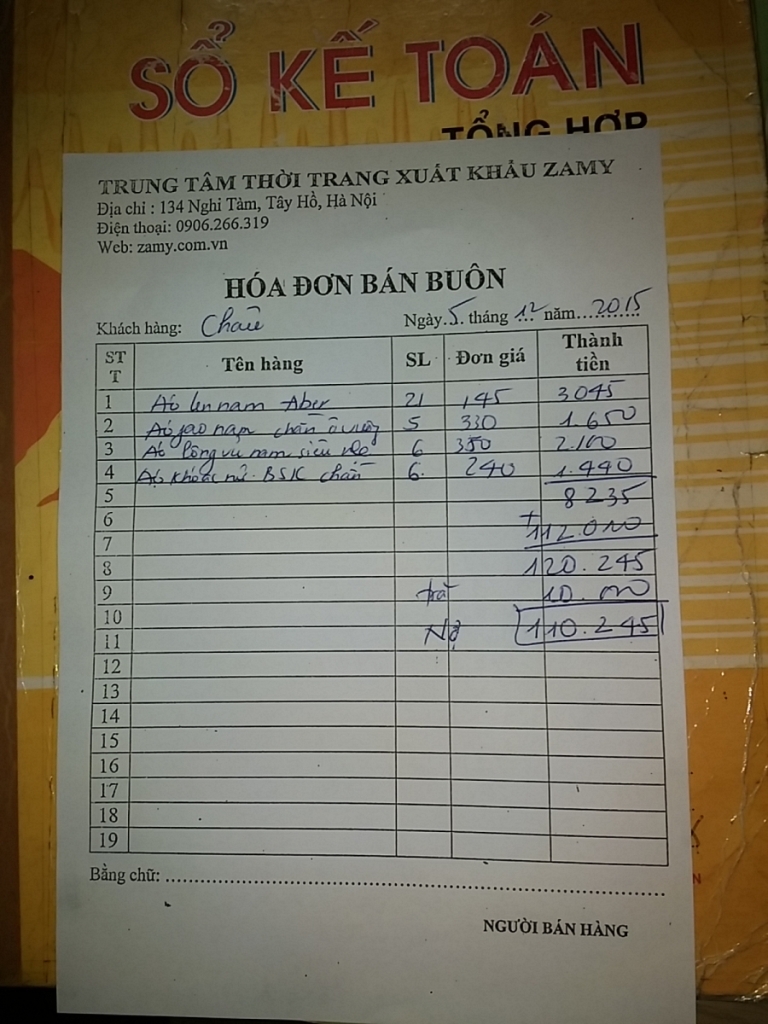 SỔ KẾ TOÁN
TỔNG HỢP
TRUNG TÂM THỜI TRANG XUẤT KHẨU ZAMY
Địa chỉ : 134 Nghi Tàm, Tây Hồ, Hà Nội
Điện thoại: 0906.266.319
Web: zamy.com.vn
HÓA ĐƠN BÁN BUÔN
Khách hàng: Châu Ngày 5 tháng 12 năm 2015
STT Tên hàng SL Đơn giá Thành tiền
1 Áo len nam Aber 21 145 3045
2 Áo gao nam chần 5 330 1.650
3 Áo lông vũ nam siêu nhẹ 6 350 2.100
4 Áo khoác nữ BSK chần 6 240 1.440
5 8235
6
7 +112.000
8 120.245
9 trả 10.000
10
11 Nợ 110.245
12
13
14
15
16
17
18
19
Bằng chữ:
NGƯỜI BÁN HÀNG